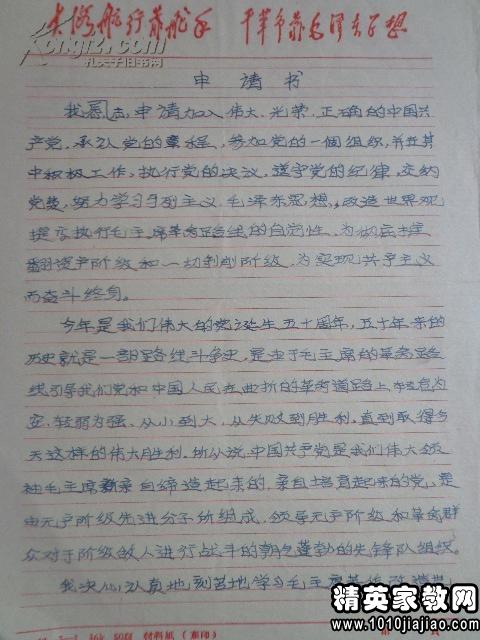 大海航行靠舵手 干革命靠毛泽东思想
孔夫子旧书网
申请书
我志愿申请加入伟大、光荣、正确的中国共
产党,承认党的章程,参加党的一個组织,并在其
中积极工作、执行党的决议,遵守党的纪律,交纳
党费,努力学习马列主义、毛泽东思想,改造世界观
提高执行毛主席革命路线的自觉性,为彻底推
翻资产阶级和一切剥削阶级,为实现共产主义
而奋斗终身。
今年是我们伟大的党诞生五十周年,五十年来的
历史就是一部路线斗争史,是由于毛主席的革命路
线引导我们党和中国人民在曲折的革命道路上,转危为
安,转弱为强、从小到大、从失败到胜利,直到取得今
天这样的伟大胜利。所以说,中国共产党是我们伟大领
袖毛主席亲自缔造起来的,亲自培育起来的党,是
由无产阶级先进分子所组成,领导无产阶级和革命群
众对于阶级敌人进行战斗的朝气蓬勃的先锋队组织。
我决心认真地刻苦地学习毛主席著作,改造世
材料紙
精英家教网
www.1010jiajiao.com